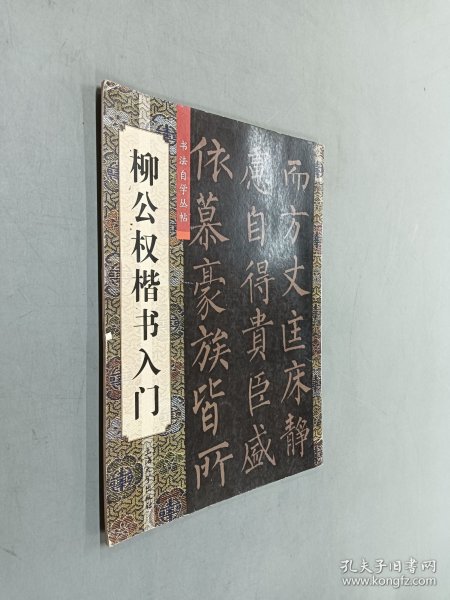 柳公权楷书入门
书法自学丛帖
而方丈匡床静
慮自得貴臣盛
依慕豪族皆所
孔夫子旧书网
www.kongfz.com